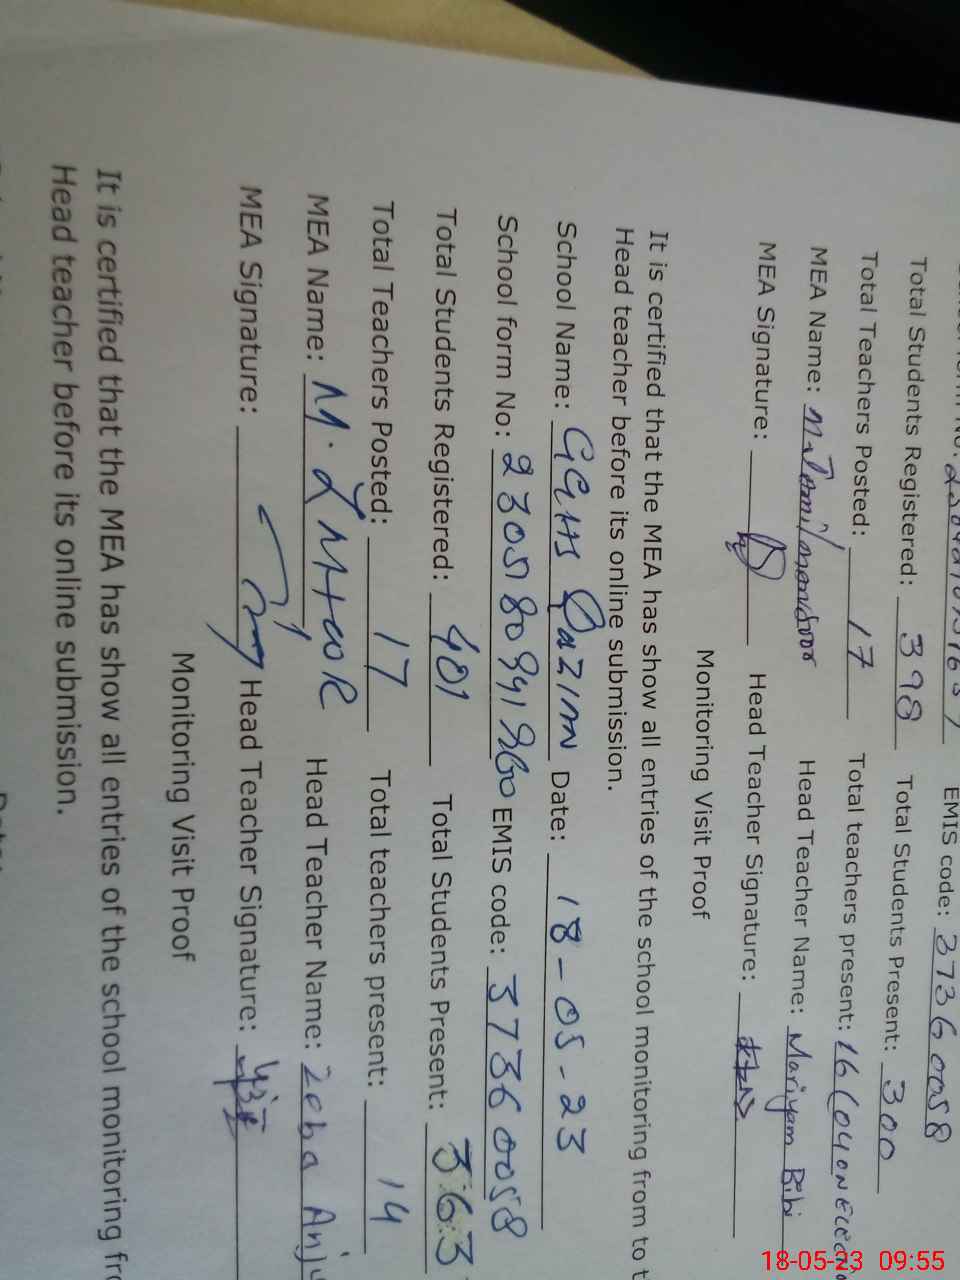 EMIS code: 37360058
Total Students Registered: 398 Total Students Present: 300
Total Teachers Posted: 17 Total teachers present: 16
MEA Name: Head Teacher Name: Mariyam Bibi
MEA Signature: Head Teacher Signature:
Monitoring Visit Proof
It is certified that the MEA has show all entries of the school monitoring from to t
Head teacher before its online submission.
School Name: GGHS Qazian Date: 18-05-23
School form No: EMIS code: 37360058
Total Students Registered: 401 Total Students Present: 363
Total Teachers Posted: 17 Total teachers present: 14
MEA Name: M. Head Teacher Name: Zeba Anju
MEA Signature: Head Teacher Signature:
Monitoring Visit Proof
It is certified that the MEA has show all entries of the school monitoring fro
Head teacher before its online submission.
18-05-23 09:55